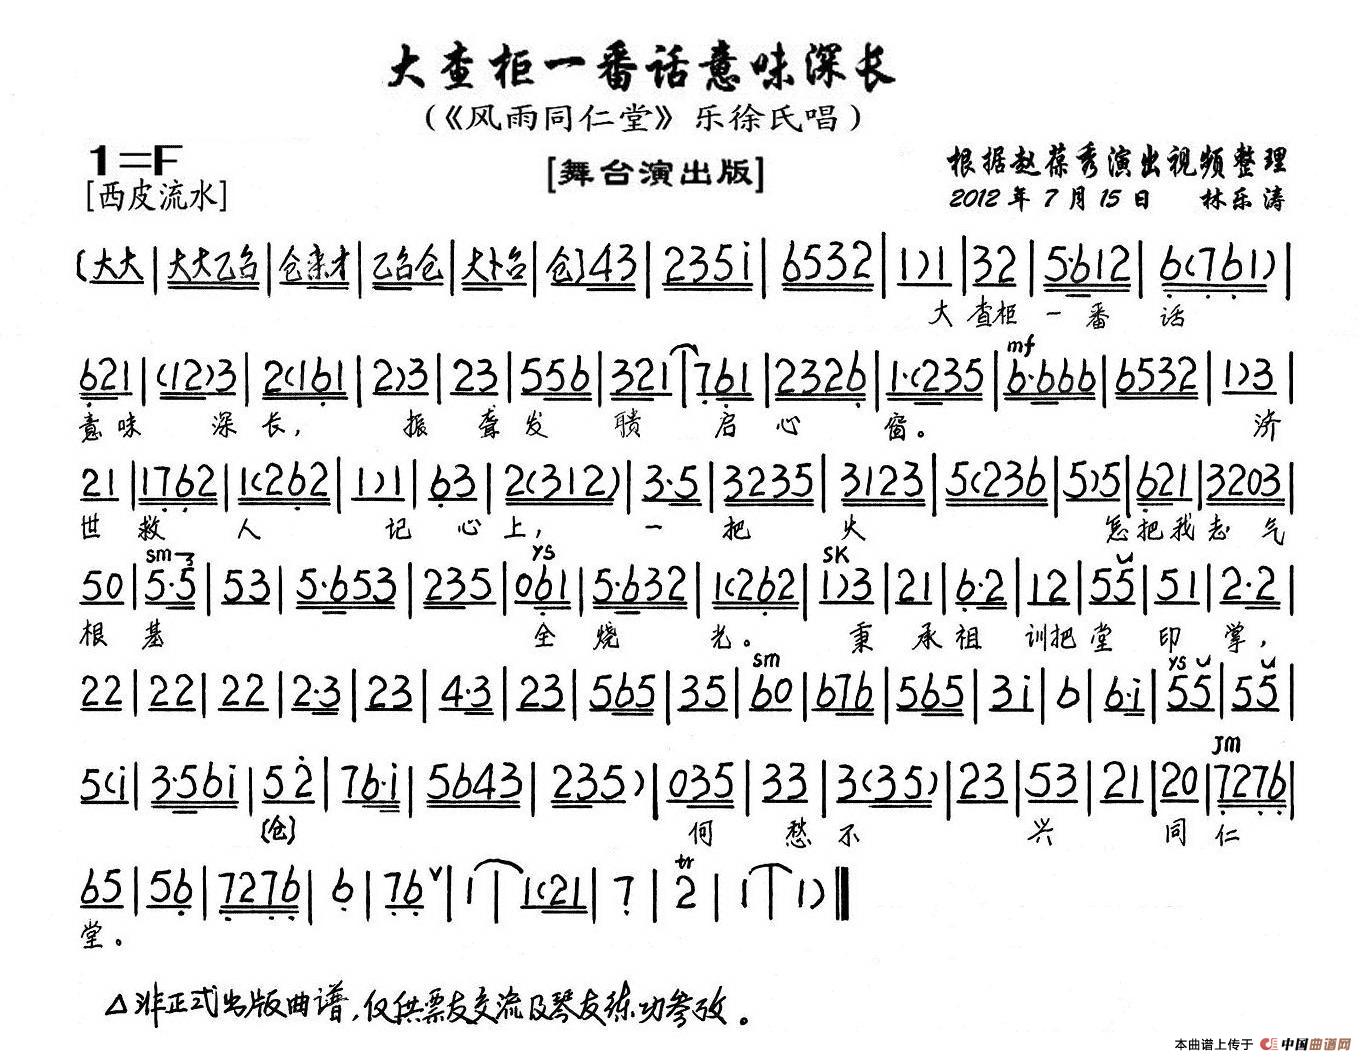 大查柜一番话意味深长
(《风雨同仁堂》乐徐氏唱)
1=F
[西皮流水]
[舞台演出版]
根据赵葆秀演出视频整理
2012年7月15日 林乐涛
(大大|大大乙台|仓来才|乙台仓|大卜台|仓)43|235i|6532|1)1|32|5·612|6(761)|
大 查柜 一 番 话
621|(12)3|2(161|2)3|23|556|321|761|2326|1·(235|6·666|6532|1)3|
mf
意味 深 长, 振 聋 发 聩 启 心 窗。 济
21|1762|1(262|1)1|63|2(312)|3·5|3235|3123|5(236|5)5|621|3203|
世 救 人 记 心 上, 一 把 火 怎把我志气
sm YS SK
50|5·5|53|5·653|235|061|5·632|1(262|1)3|21|6·2|12|55|51|2·2|
根 基 全 烧 光。 秉 承祖 训把堂 印 掌,
sm YS
22|22|22|2·3|23|4·3|23|565|35|60|676|565|3i|6|6·i|55|55|
JM
5(i|3·56i|52|76·i|5643|235)|035|33|3(35)|23|53|21|20|7276|
(仓) 何 愁 不 兴 同 仁
tr
65|56|7276|6|76|1|1(21|7|2|1|1)
堂。
△非正式出版曲谱,仅供票友交流及琴友练功参考。
本曲谱上传于 中国曲谱网